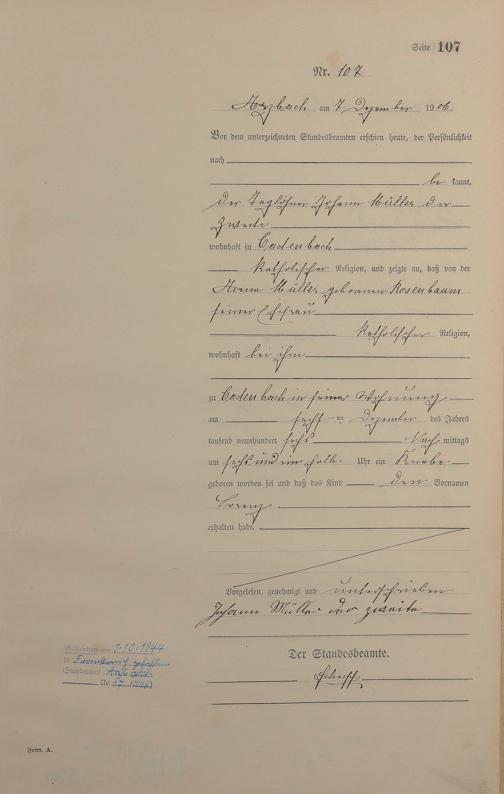 Seite 107
Nr. 107
Arzbach am 7 Dezember 1906.
Vor dem unterzeichneten Standesbeamten erschien heute, der Persönlichkeit
nach
be kannt,
der Taglöhner Johann Müller der
Zweite
wohnhaft in Cadenbach
Katholischer Religion, und zeigte an, daß von der
Anna Müller geborenen Rosenbaum
seiner Ehefrau
Katholischer Religion,
wohnhaft bei ihm
zu Cadenbach in seiner Wohnung
am sechs ten Dezember des Jahres
tausend neunhundert sechs Nach mittags
um sechs und ein halb Uhr ein Knabe
geboren worden sei und daß das Kind den Vornamen
Lorenz
erhalten habe.
Vorgelesen, genehmigt und unterschrieben
Johann Müller der zweite
Der Standesbeamte.
Gestorben am 1.10.1944
in gefallen
(Standesamt Arzbach
Nr. 17 1944)
Form. A.